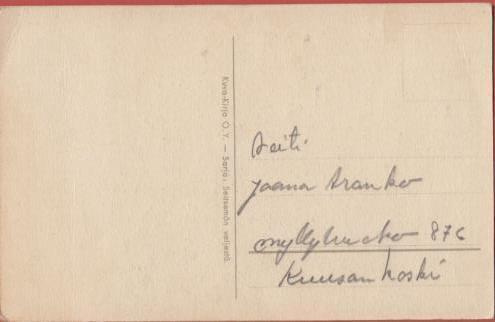 Kuva-Kirja O.Y. — Sarja: Seitsemän veljestä.
Neiti
Jaana Aranko
876
Kuusankoski